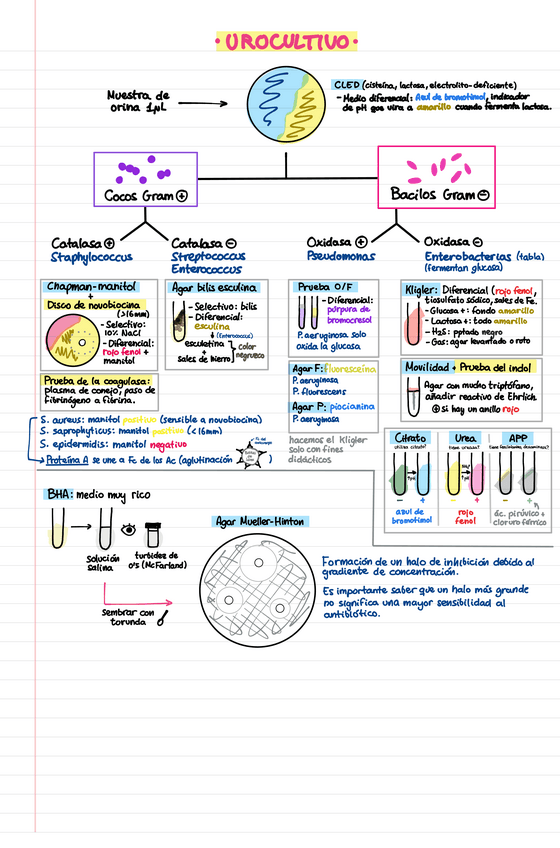 • UROCULTIVO •
Muestra de
orina 1µL
CLED (cisteína, lactosa, electrolito-deficiente)
- Medio diferencial: Azul de bromotimol, indicador
de pH que vira a amarillo cuando fermenta lactosa.
Cocos Gram +
Bacilos Gram -
Catalasa +
Staphylococcus
Catalasa -
Streptococcus
Enterococcus
Oxidasa +
Pseudomonas
Oxidasa -
Enterobacterias (tabla)
(fermentan glucosa)
Chapman-manitol
+
Disco de novobiocina
(>16mm)
- Selectivo:
10% NaCl
- Diferencial:
rojo fenol +
manitol
Prueba de la coagulasa:
plasma de conejo, paso de
fibrinógeno a fibrina.
Agar bilis esculina
- Selectivo: bilis
- Diferencial:
esculina
↓ (Enterococcus)
esculetina
+
sales de hierro
color
negruzco
Prueba O/F
- Diferencial:
púrpura de
bromocresol
P. aeruginosa solo
oxida la glucosa
Agar F: fluoresceína
P. aeruginosa
P. fluorescens
Agar P: piocianina
P. aeruginosa
hacemos el Kligler
solo con fines
didácticos
Kligler: Diferencial (rojo fenol,
tiosulfato sódico, sales de Fe.
- Glucosa +: fondo amarillo
- Lactosa +: todo amarillo
- H₂S: pptado negro
- Gas: agar levantado o roto
Movilidad + Prueba del indol
Agar con mucho triptófano,
añadir reactivo de Ehrlich.
+ si hay un anillo rojo
S. aureus: manitol positivo (sensible a novobiocina)
S. saprophyticus: manitol positivo (<16mm)
S. epidermidis: manitol negativo
→ Proteína A se une a Fc de los Ac (aglutinación )
Citrato
- +
azul de
bromotimol
Urea
- +
rojo
fenol
APP
- +
ác. pirúvico +
cloruro férrico
BHA: medio muy rico
Solución
salina
turbidez de
0'5 (McFarland)
Sembrar con
torunda
Agar Mueller-Hinton
Formación de un halo de inhibición debido al
gradiente de concentración.
Es importante saber que un halo más grande
no significa una mayor sensibilidad al
antibiótico.